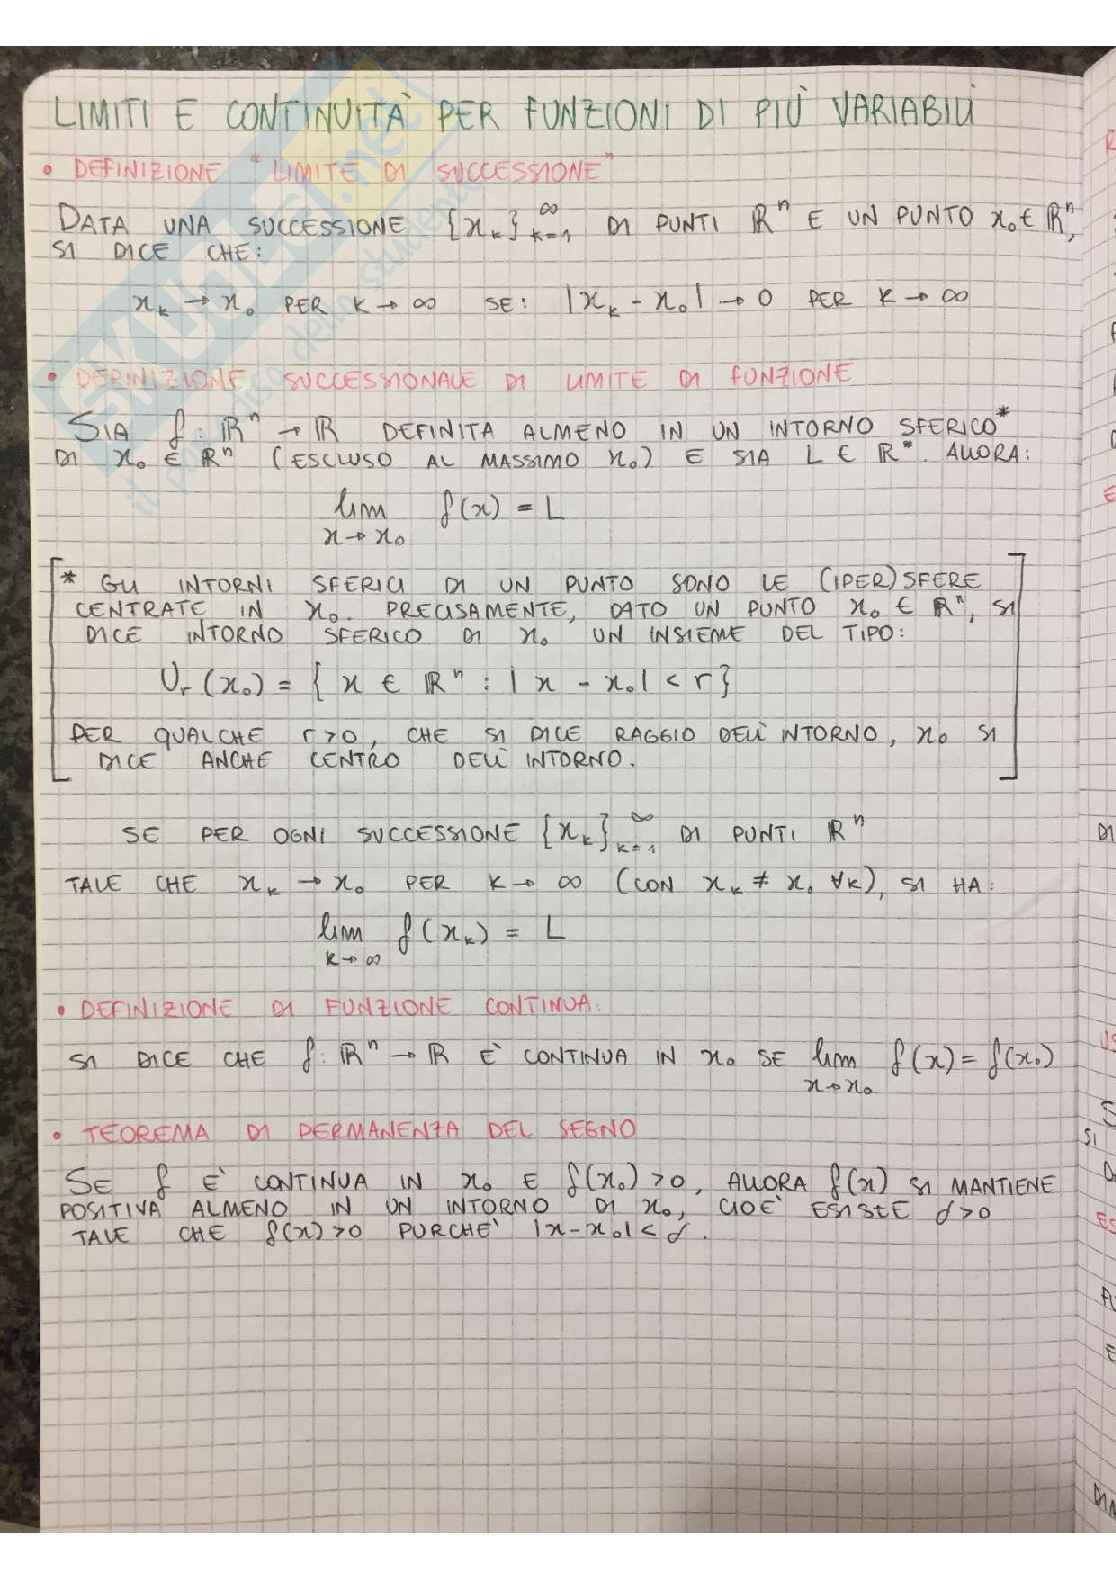 LIMITI E CONTINUITÀ PER FUNZIONI DI PIÙ VARIABILI
• DEFINIZIONE "LIMITE DI SUCCESSIONE"
DATA UNA SUCCESSIONE {x_k}_{k=1}^∞ DI PUNTI ℝ^n E UN PUNTO x_0 ∈ ℝ^n,
SI DICE CHE:
x_k → x_0 PER k → ∞ SE: |x_k - x_0| → 0 PER k → ∞
• DEFINIZIONE SUCCESSIONALE DI LIMITE DI FUNZIONE
SIA f: ℝ^n → ℝ DEFINITA ALMENO IN UN INTORNO SFERICO*
DI x_0 ∈ ℝ^n (ESCLUSO AL MASSIMO x_0) E SIA L ∈ ℝ*. ALLORA:
lim f(x) = L
x → x_0
* GLI INTORNI SFERICI DI UN PUNTO SONO LE (IPER)SFERE
CENTRATE IN x_0. PRECISAMENTE, DATO UN PUNTO x_0 ∈ ℝ^n, SI
DICE INTORNO SFERICO DI x_0 UN INSIEME DEL TIPO:
U_r(x_0) = {x ∈ ℝ^n : |x - x_0| < r}
PER QUALCHE r>0, CHE SI DICE RAGGIO DELL'INTORNO, x_0 SI
DICE ANCHE CENTRO DELL'INTORNO.
SE PER OGNI SUCCESSIONE {x_k}_{k=1}^∞ DI PUNTI ℝ^n
TALE CHE x_k → x_0 PER k → ∞ (CON x_k ≠ x_0 ∀k), SI HA:
lim f(x_k) = L
k → ∞
• DEFINIZIONE DI FUNZIONE CONTINUA:
SI DICE CHE f: ℝ^n → ℝ È CONTINUA IN x_0 SE lim f(x) = f(x_0)
x → x_0
• TEOREMA DI PERMANENZA DEL SEGNO
SE f È CONTINUA IN x_0 E f(x_0) > 0, ALLORA f(x) SI MANTIENE
POSITIVA ALMENO IN UN INTORNO DI x_0, CIOÈ ESISTE δ>0
TALE CHE f(x) > 0 PURCHÈ |x - x_0| < δ.
SKUOLA.net
il paradiso dello studente